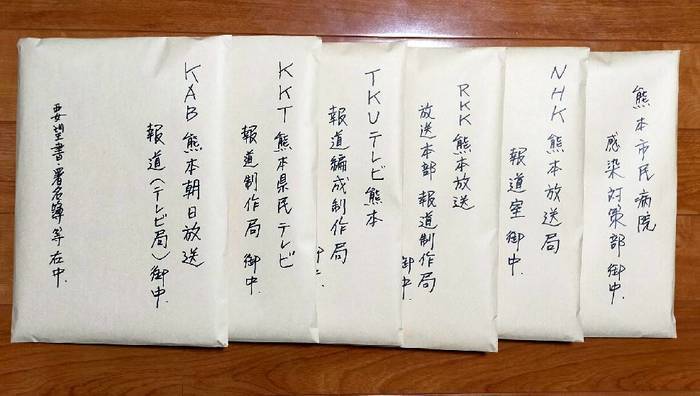 熊本市民病院
感染対策部 御中.
NHK 熊本放送局
報道室 御中.
RKK 熊本放送
放送本部 報道制作局
御中.
TKUテレビ熊本
報道編成制作局
御中.
KKT 熊本県民テレビ
報道制作局 御中.
KAB 熊本朝日放送
報道(テレビ局)御中.
要望書・署名簿等在中.